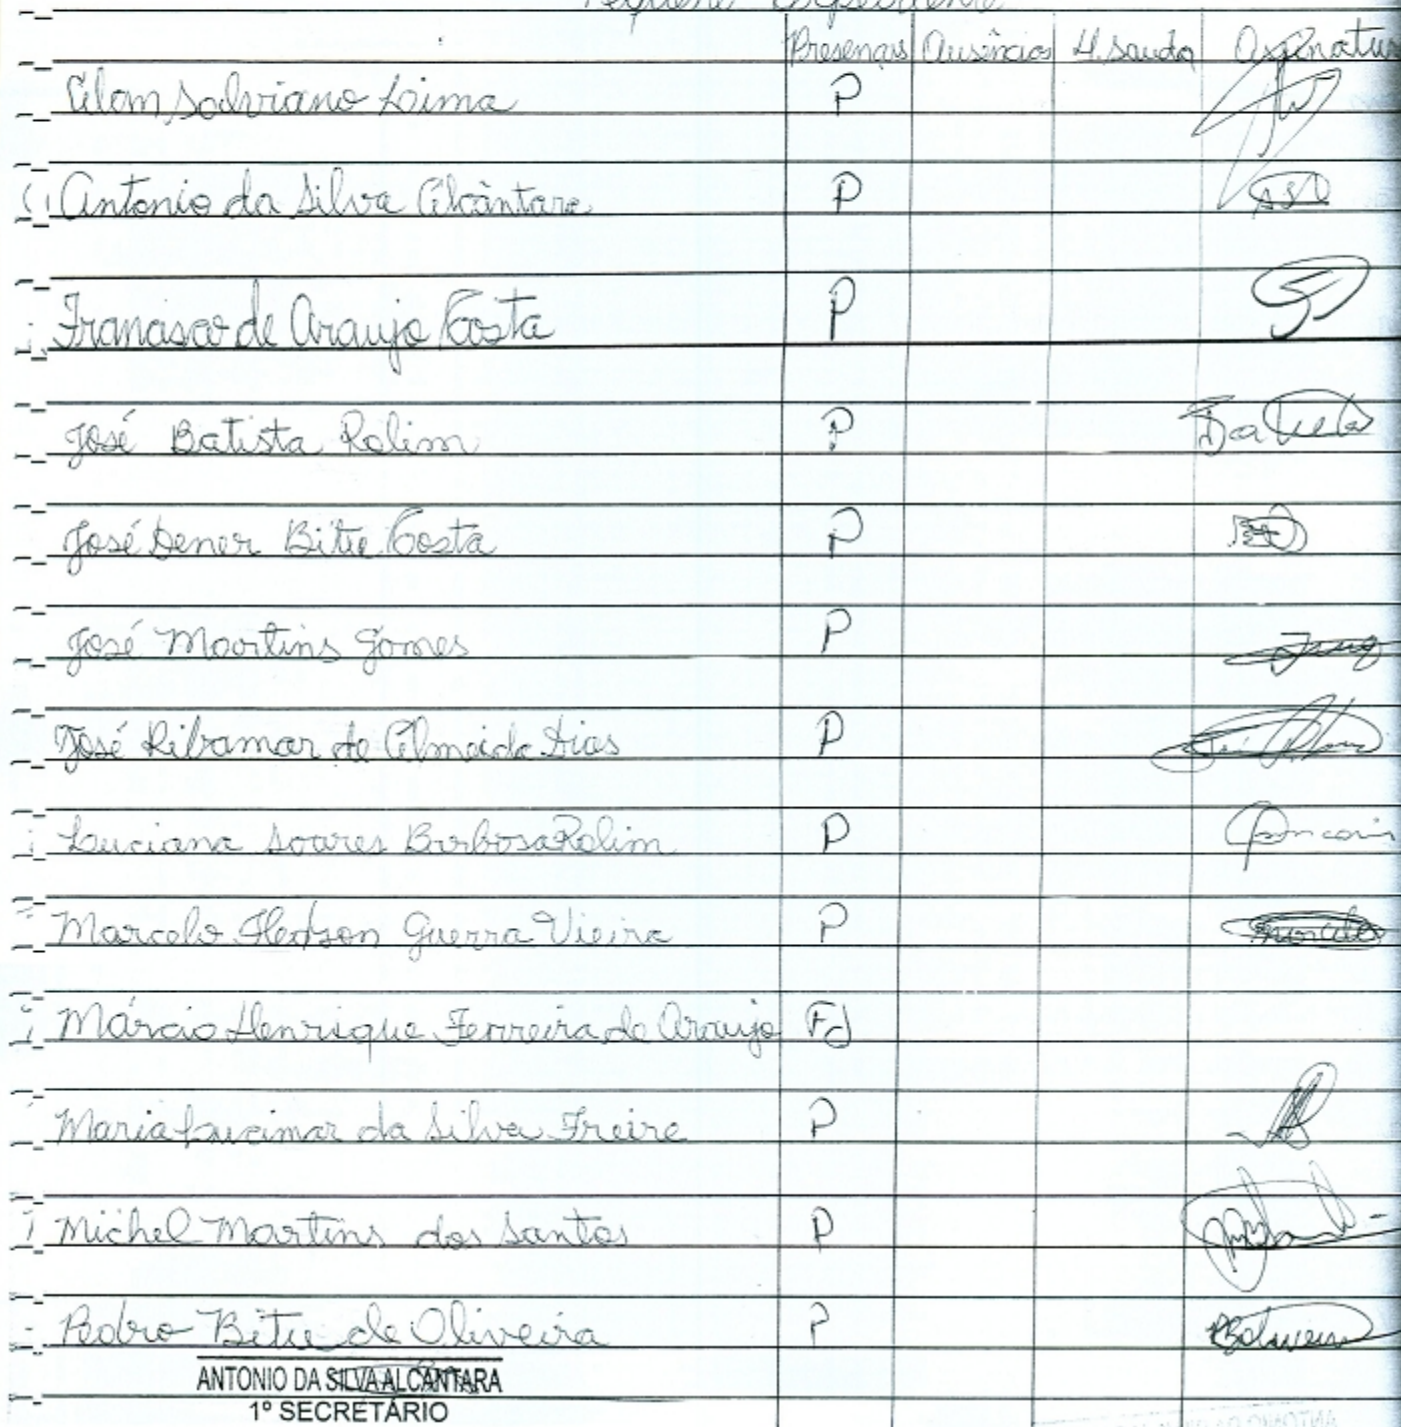 Pequeno Expediente
Presenças Ausências H. saída Assinatura
Alan Salviano Lima P
Antonio da Silva Alcântara P ASA
Francisco de Araujo Costa P
José Batista Rolim P Batista
José Dener Bitu Costa P
José Martins Gomes P
José Ribamar de Almeida Dias P
Luciana Soares Barbosa Rolim P
Marcelo Hedson Guerra Vieira P Marcelo
Márcio Henrique Ferreira de Araujo FJ
Maria Lucimar da Silva Freire P
Michel Martins dos Santos P
Pedro Bitu de Oliveira P
ANTONIO DA SILVA ALCÂNTARA
1º SECRETÁRIO